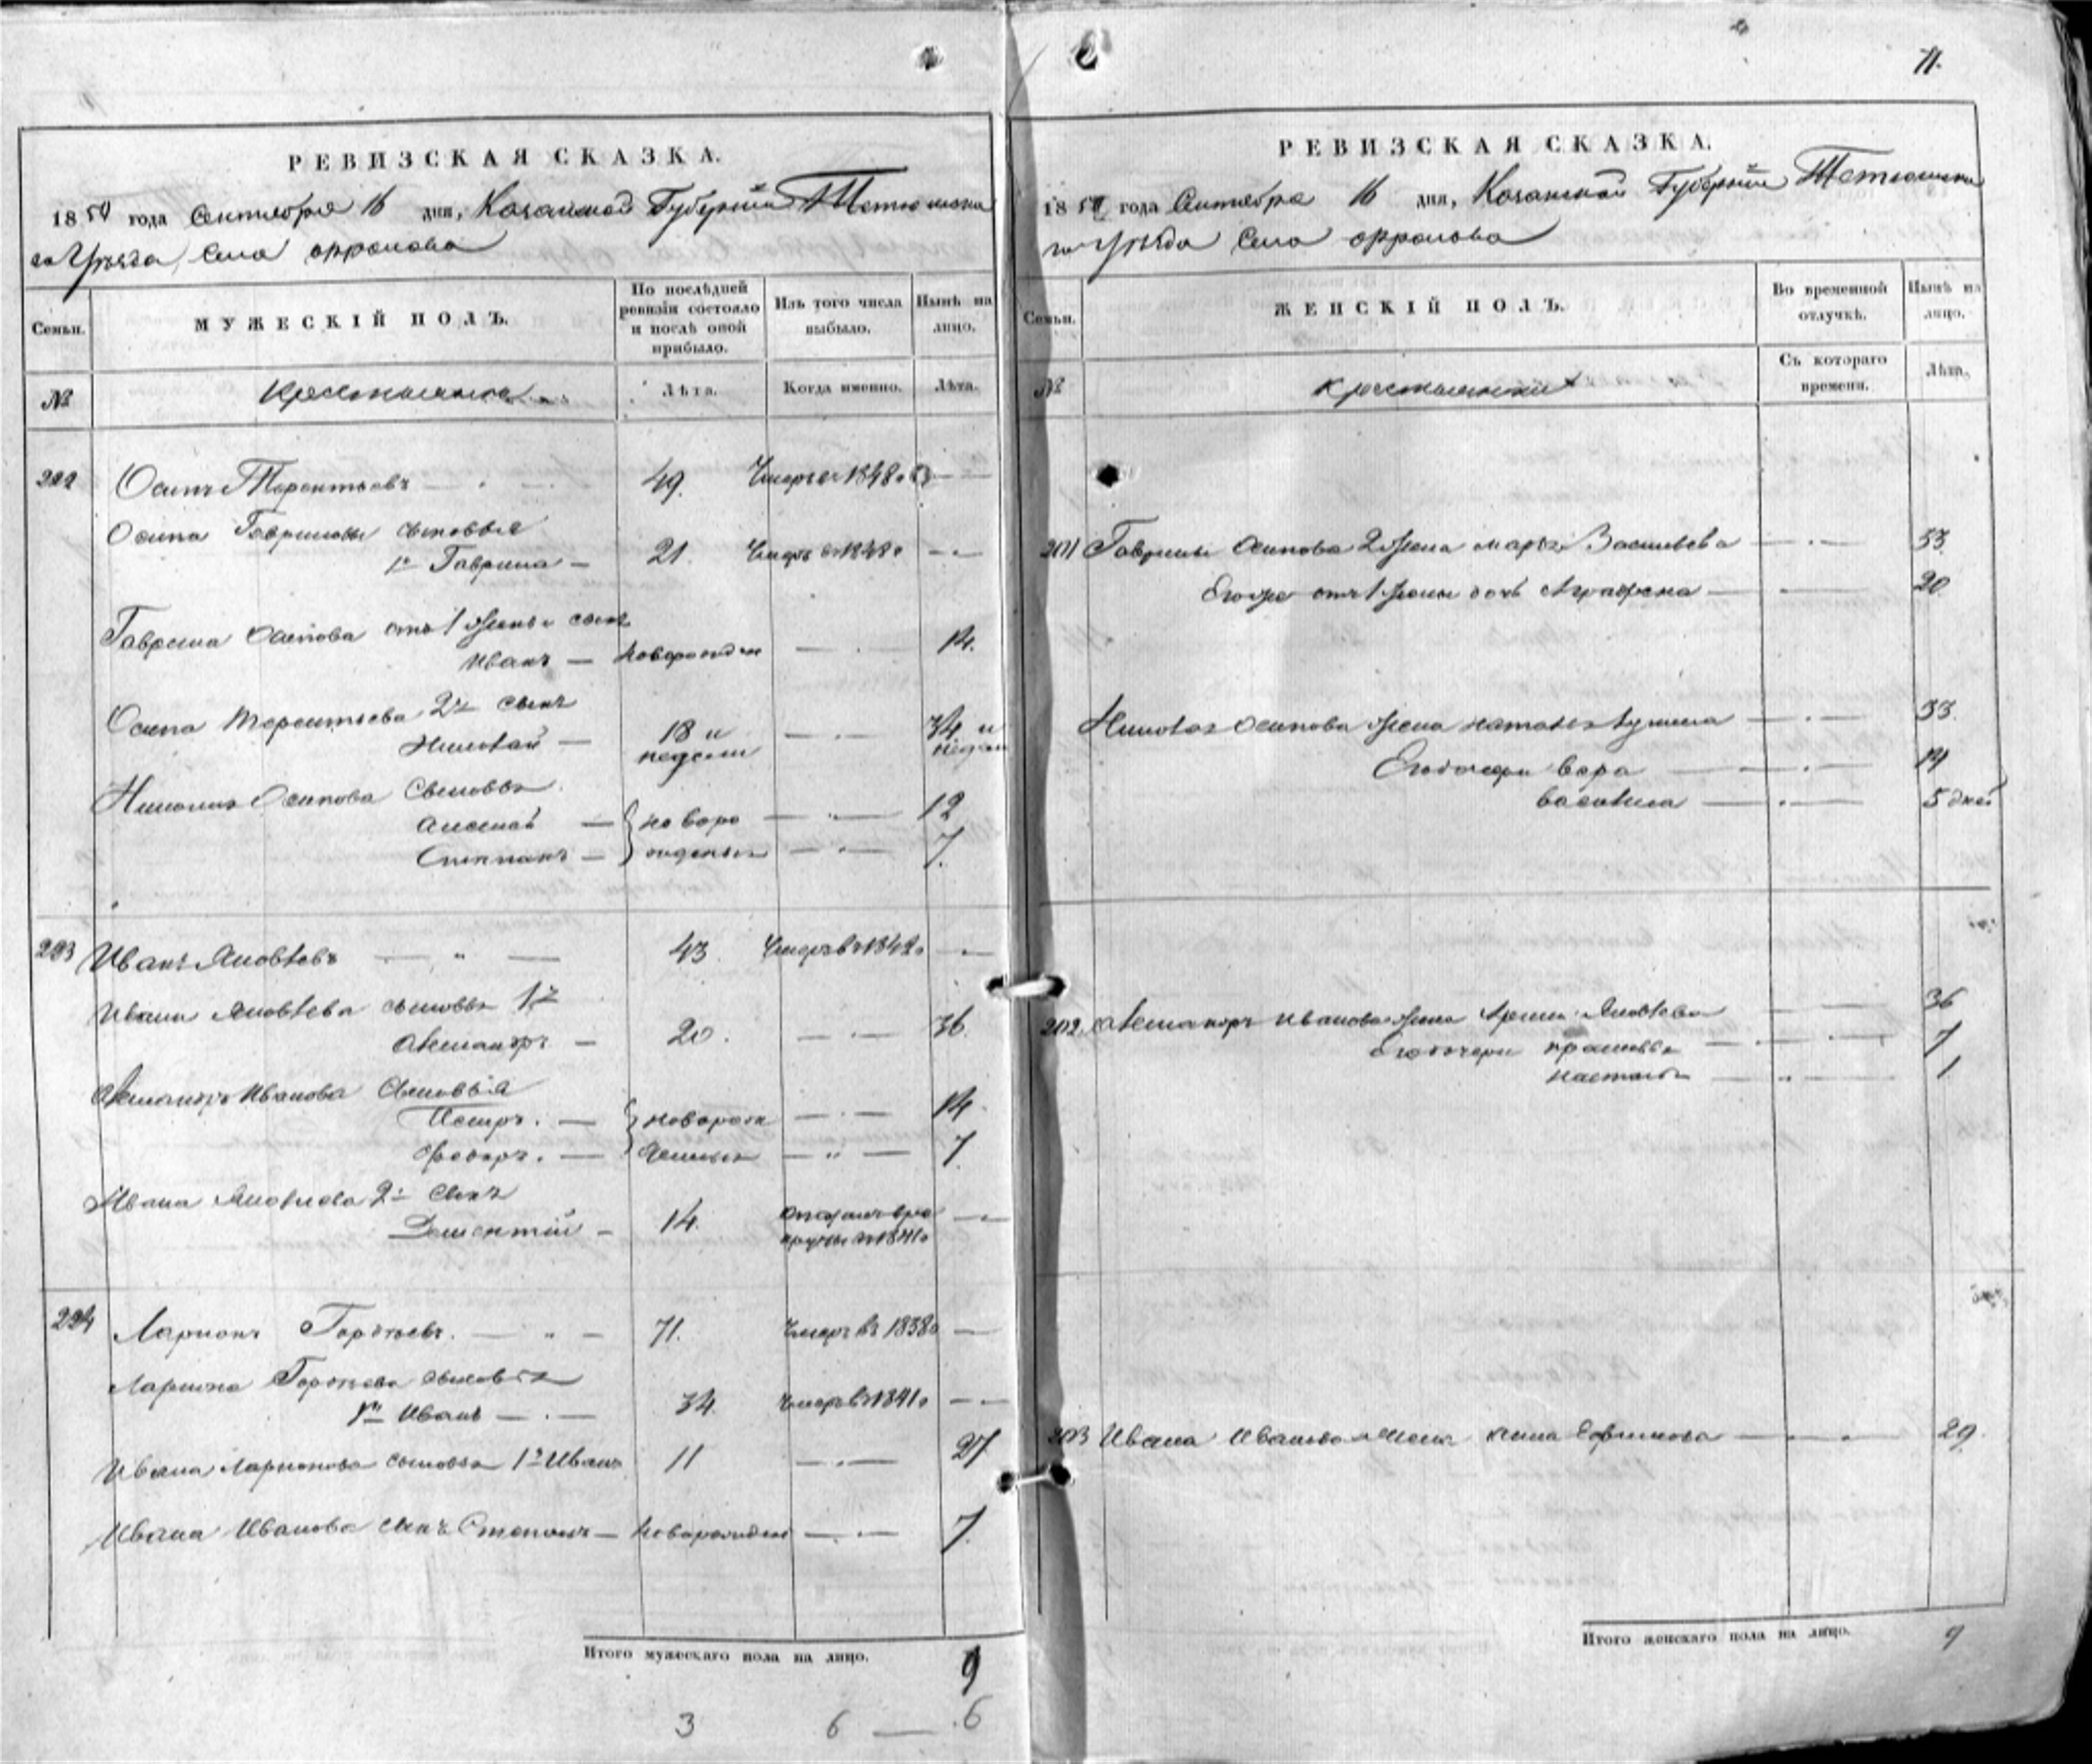 71.
РЕВИЗСКАЯ СКАЗКА.
1850 года Сентября 16 дня, Казанской Губернии Тетюшска
го Уѣзда, Села
Семьи.
МУЖЕСКІЙ ПОЛЪ.
По послѣдней ревизіи состояло и послѣ оной прибыло.
Изъ того числа выбыло.
Нынѣ на лицо.
№
Крестьяне
Лѣта.
Когда именно.
Лѣта.
222 Осипъ Терентьевъ 49. Умеръ въ 1848 г
Осипа Гаврилы сыновья
1й Гаврила 21. Умеръ въ 1848 г
Гаврила Осипова отъ 1 жены сынъ
Иванъ новорожден 14.
Осипа Терентьева 2й сынъ
Николай 18 и недели 34 и недели
Николая Осипова Сыновья
Алексей новоро 12
Степанъ жденыя 7.
223 Иванъ Яковлевъ 43. Умеръ въ 1842 г
Ивана Яковлева сыновья 1й
Александръ 20. 36.
Александръ Иванова Сыновья
Петръ. новорож 14
Федоръ. денныя 7
Ивана Яковлева 2й сынъ
Дементий 14. въ ре
круты въ 1841 г
224 Ларионъ 71. Умеръ въ 1838 г
Лариона сыновья
1й Иванъ 34. Умеръ въ 1841 г
Ивана Ларионова сыновья 1й Иванъ 11 27
Ивана Иванова сынъ Степанъ новорожден 7.
Итого мужескаго пола на лицо. 9
3 6 6
РЕВИЗСКАЯ СКАЗКА.
1850 года Сентября 16 дня, Казанской Губернии Тетюшска
го Уѣзда Села
Семьи.
ЖЕНСКІЙ ПОЛЪ.
Во временной отлучкѣ.
Нынѣ на лицо.
№
Крестьянки
Съ котораго времени.
Лѣта.
201 Гаврилы Осипова 2 жена Марья Васильева 53.
Егоже отъ 1 жены дочь Аграфена 20
Николая Осипова жена Наталья 33.
Егодочери Вера 14
Василиса 5 дней
202. Александръ Иванова жена Арина Яковлева 36
Егодочери Прасковья 7
Настасья 1
203 Ивана Иванова жена Анна Ефимова 29.
Итого женскаго пола на лицо. 9